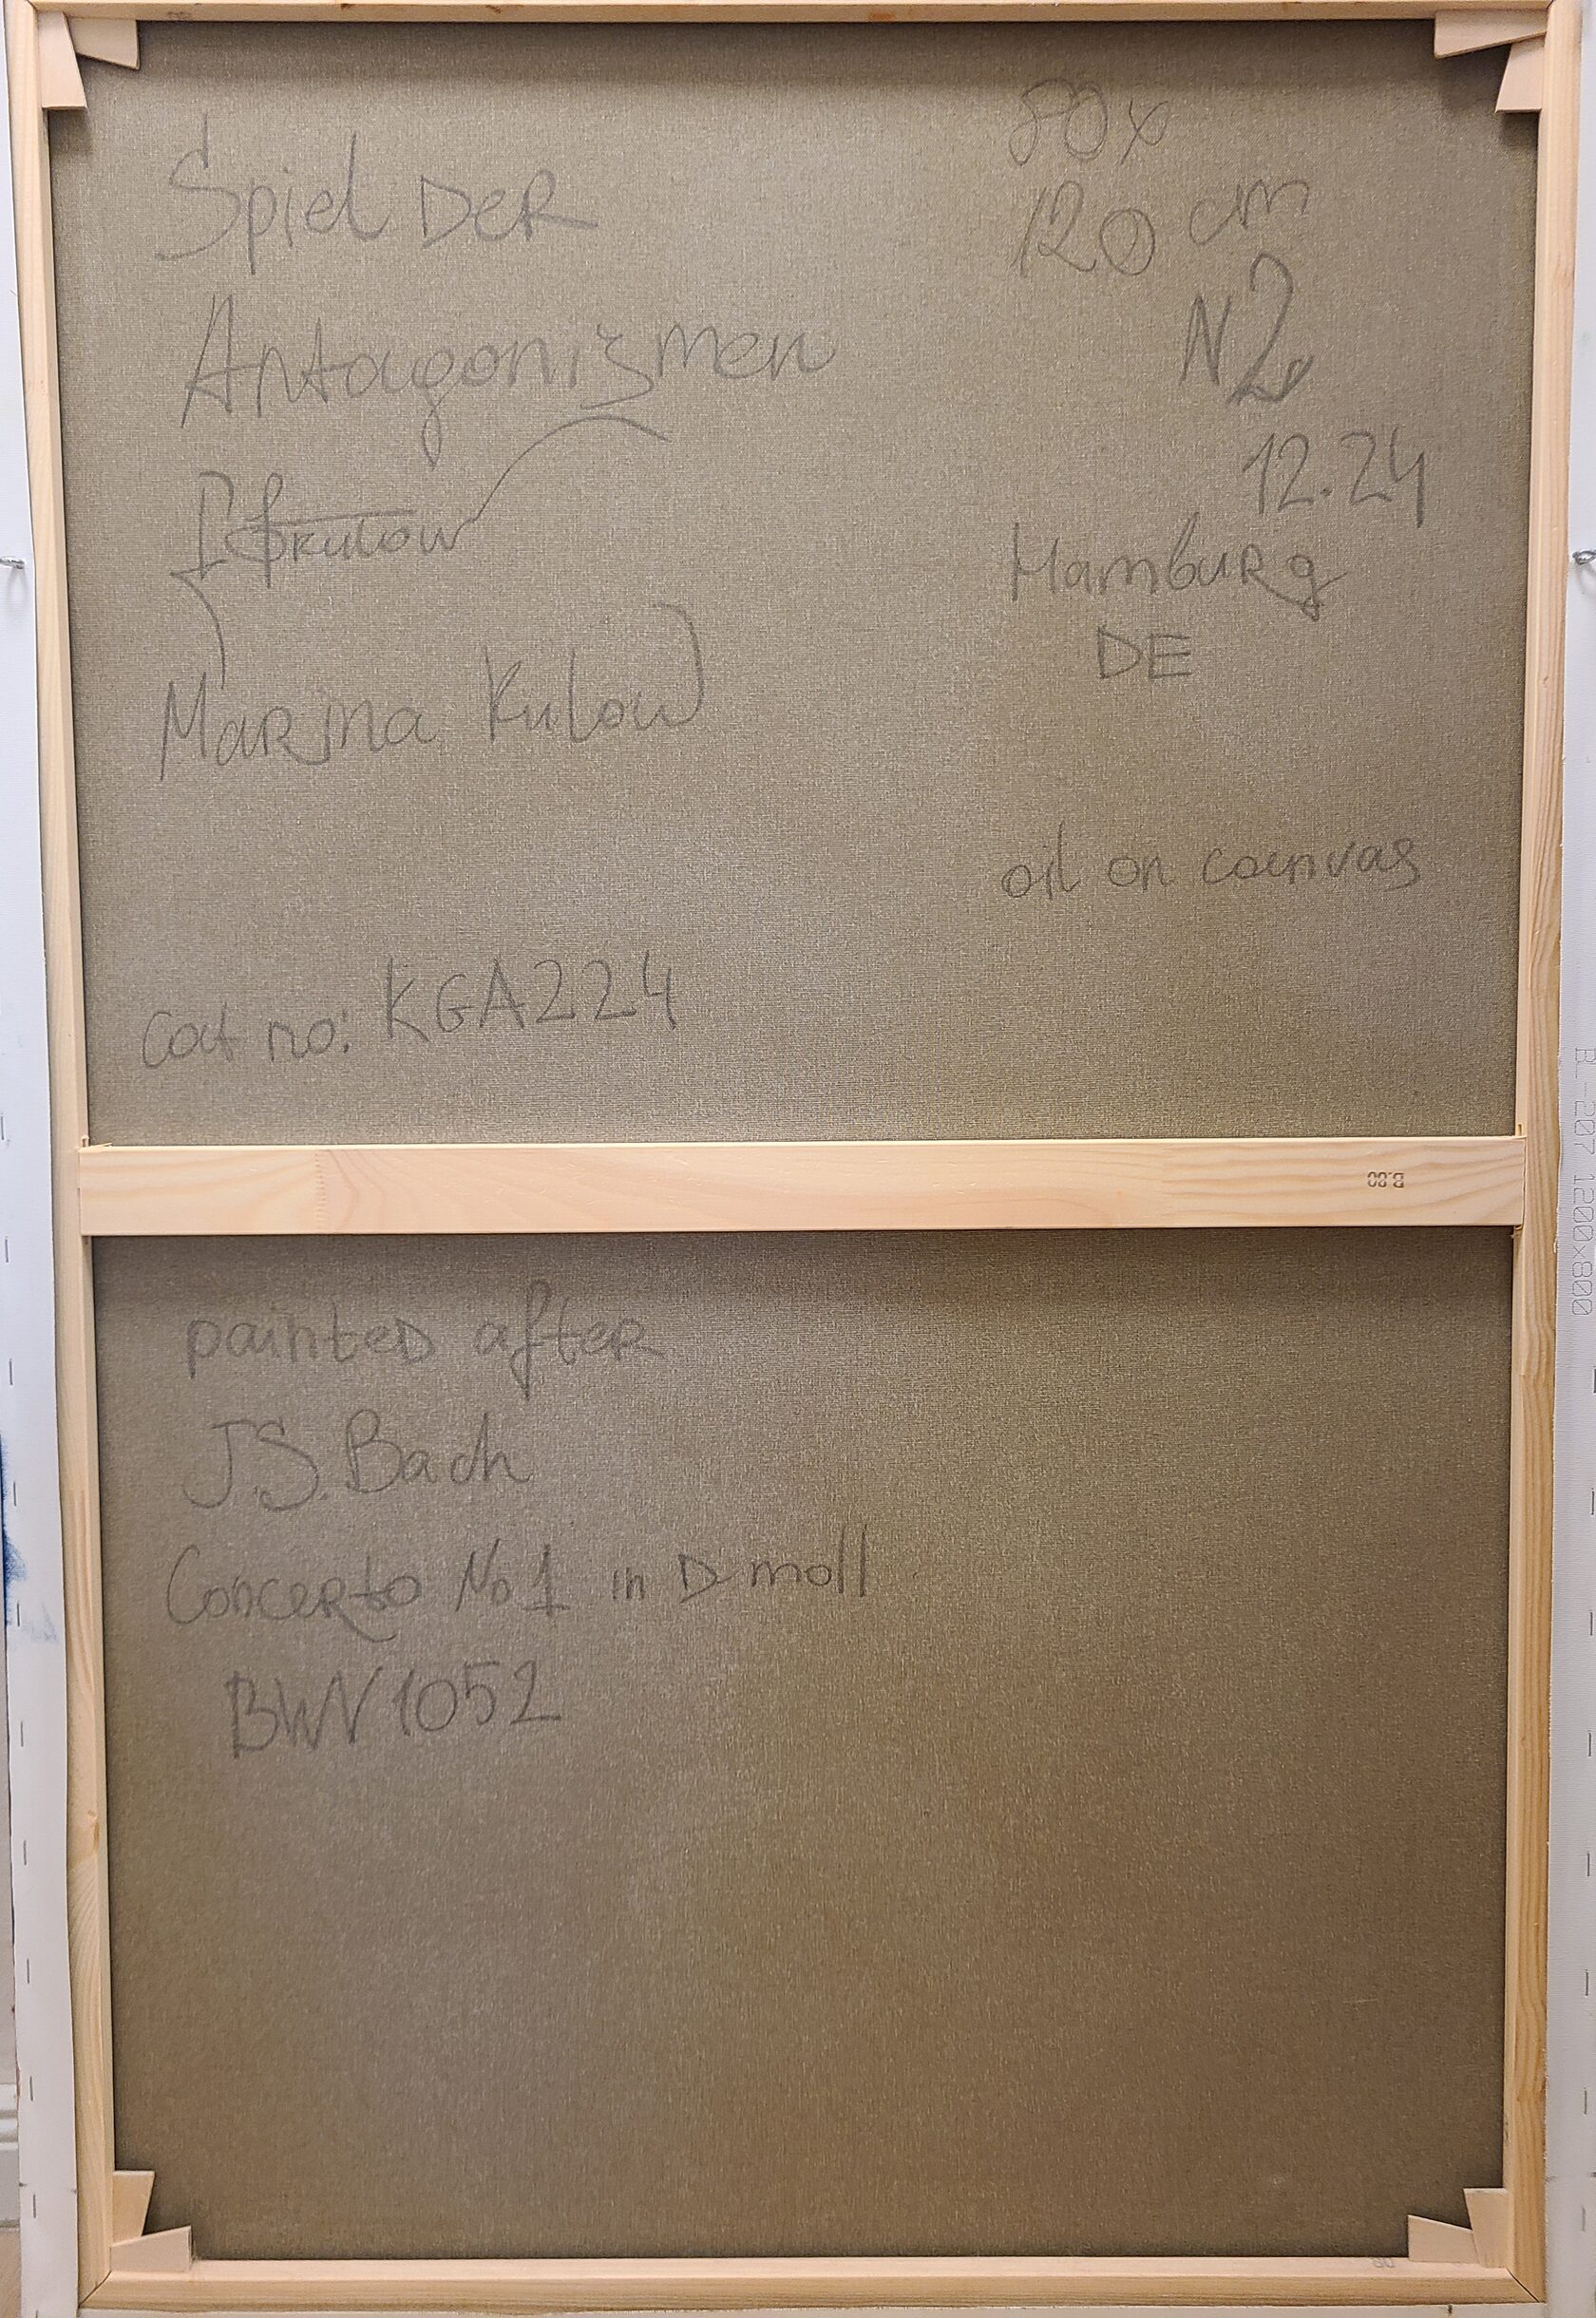 Spiel DER
Antagonizmen
Marina Kulow
cat no: KGA224
80x
120 cm
N2
12.24
Hamburg
DE
oil on canvas
B.80
BL_207 1200x800
painted after
J.S.Bach
Concerto No 1 in D moll
BWV 1052
80